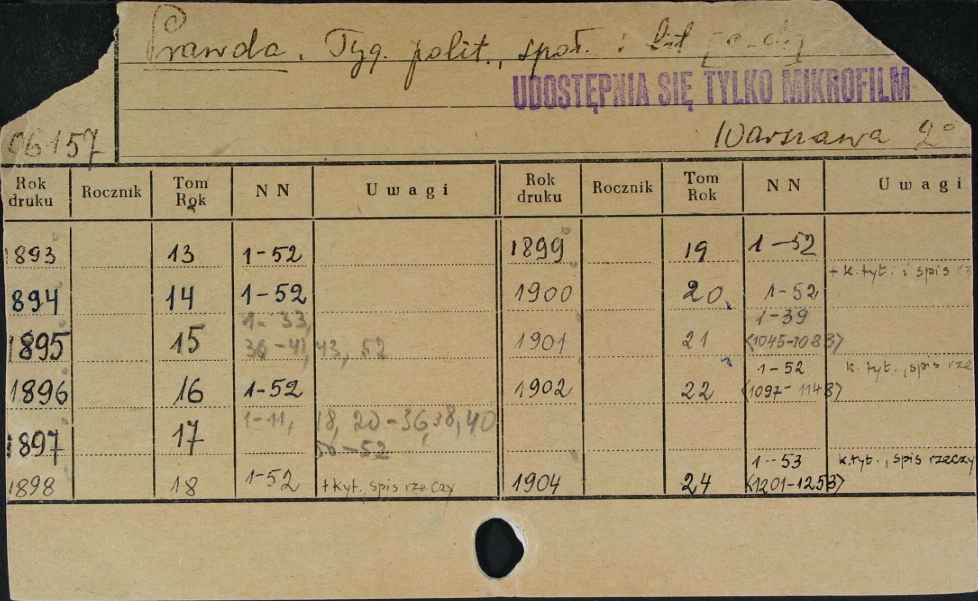 Prawda. Tyg. polit., społ. i lit
UDOSTĘPNIA SIĘ TYLKO MIKROFILM
06157 Warszawa 2°
Rok druku Rocznik Tom Rok NN Uwagi Rok druku Rocznik Tom Rok NN Uwagi
1893 13 1-52 1899 19 1-52
+ k. tyt. i spis
894 14 1-52 1900 20 1-52
1895 15 1-33, 36-41, 43, 52 1901 21 1-39 (1045-1083)
1896 16 1-52 1902 22 1-52 (1097-1148) k. tyt., spis rze
1897 17 1-11, 18, 20-36, 38, 40
-52
1898 18 1-52 + k.tyt., spis rzeczy 1904 24 1-53 (1201-1253) k.tyt., spis rzeczy